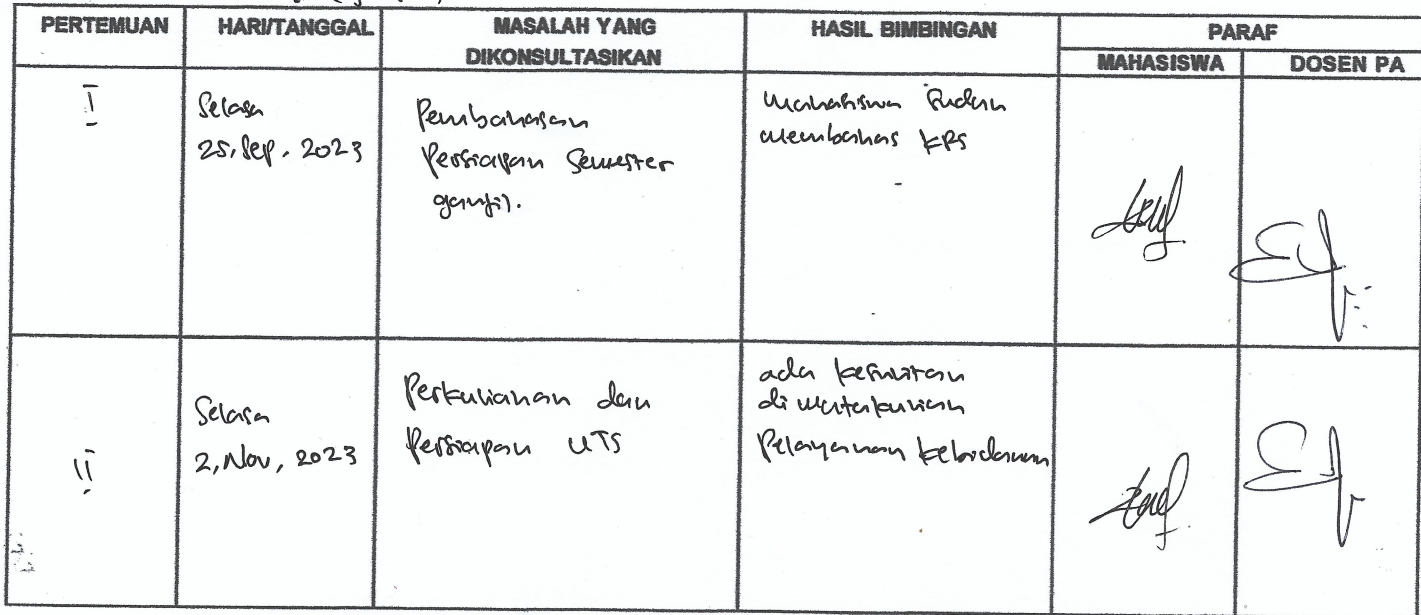 PERTEMUAN HARI/TANGGAL MASALAH YANG DIKONSULTASIKAN HASIL BIMBINGAN PARAF
MAHASISWA DOSEN PA
I
Selasa
25, Sep. 2023
Pembahasan
Persiapan Semester
ganjil.
Mahasiswa Sudah
membahas KRS
II
Selasa
2, Nov, 2023
Perkuliahan dan
Persiapan UTS
ada kesulitan
di matakuliah
Pelayanan kebidanan